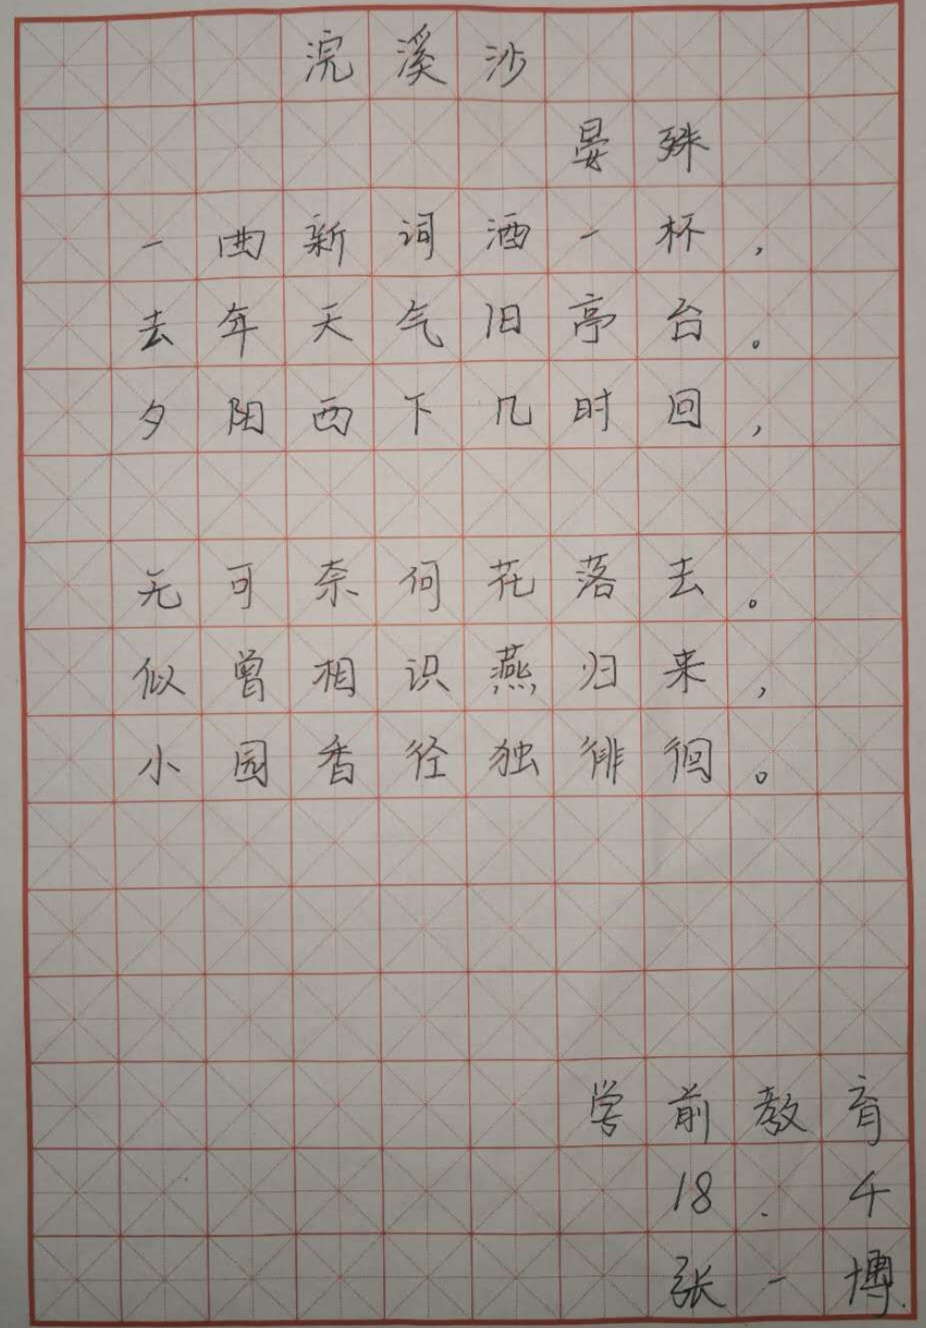 浣溪沙
晏殊
一曲新词酒一杯,
去年天气旧亭台。
夕阳西下几时回,
无可奈何花落去。
似曾相识燕归来,
小园香径独徘徊。
学前教育
18.4
张一博